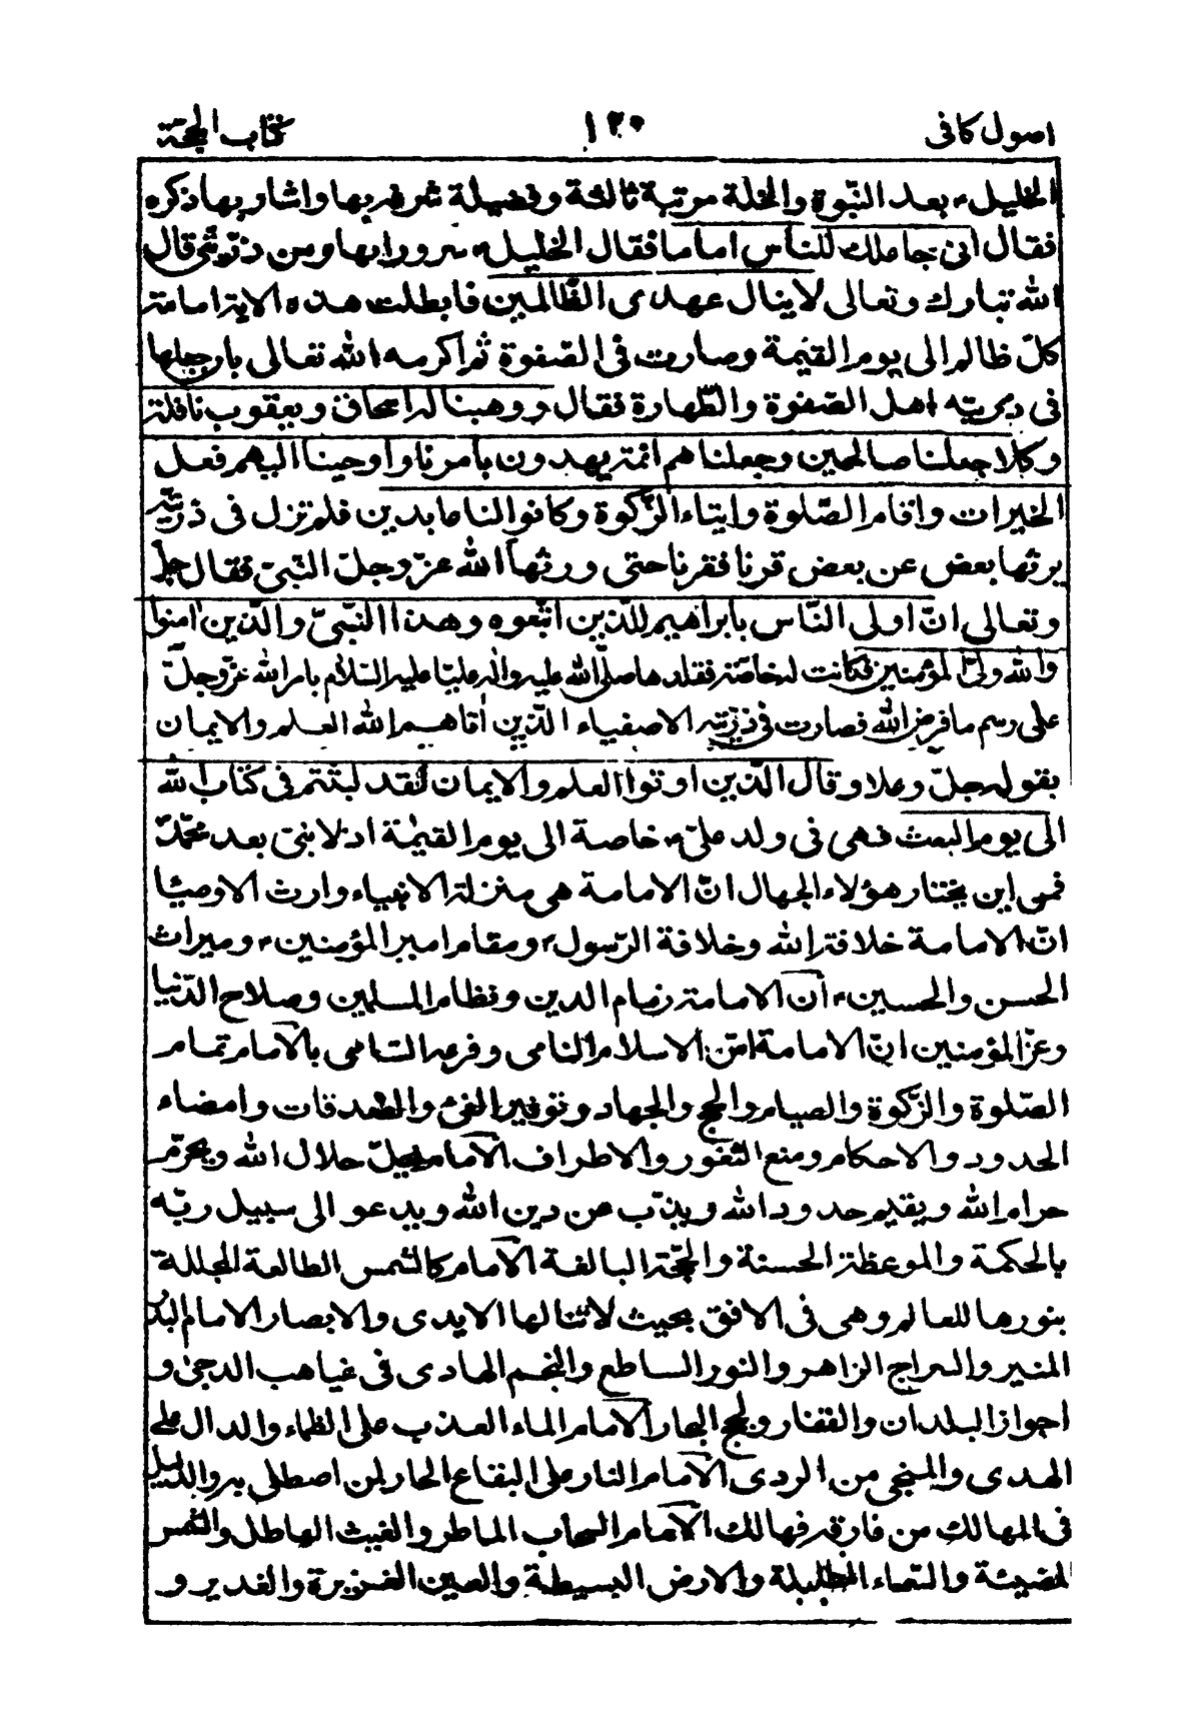 اصول كافى ١٢٠ كتاب الحجة
الخليل ع بعد النبّوة والخلة مرتبة ثالثة وفضيلة شرفه بها واشار بها ذكره
فقال انى جاعلك للناس اماما فقال الخليل ع سرورا بها ومن ذرّيتى قال
الله تبارك وتعالى لا ينال عهدى الظّالمين فابطلت هذه الاية امامة
كلّ ظالم الى يوم القيمة وصارت فى الصّفوة ثم اكرمه الله تعالى بان جعلها
فى ذريته اهل الصّفوة والطّهارة فقال ووهبنا له اسحاق ويعقوب نافلة
وكلا جعلنا صالحين وجعلناهم ائمة يهدون بامرنا واوحينا اليهم فعل
الخيرات واقام الصّلوة وايتاء الزّكوة وكانوا لنا عابدين فلم تزل فى ذريّته
يرثها بعض عن بعض قرنا فقرنا حتى ورثها الله عزّ وجلّ النّبىّ فقال جلّ
وتعالى انّ اولى النّاس بابراهيم للّذين اتّبعوه وهذا النّبىّ والّذين امنوا
والله ولىّ المؤمنين فكانت له خاصّة فقلدها صلّى الله عليه واله عليّا عليه السّلام بامر الله عزّ وجلّ
على رسم ما فرض الله فصارت فى ذرّيّته الاصفياء الّذين اتاهم الله العلم والايمان
بقوله جلّ وعلا وقال الّذين اوتوا العلم والايمان لقد لبثتم فى كتاب الله
الى يوم البعث فهى فى ولد علىّ ع خاصة الى يوم القيمة اذ لا نبىّ بعد محمّد
فمن اين يختار هؤلاء الجهال انّ الامامة هى منزلة الانبياء وارث الاوصيا
انّ الامامة خلافة الله وخلافة الرّسول ص ومقام امير المؤمنين ع وميراث
الحسن والحسين ع ان الامامة زمام الدين ونظام المسلمين وصلاح الدّنيا
وعزّ المؤمنين انّ الامامة اسّ الاسلام النامى وفرعه السّامى بالامام تمام
الصّلوة والزّكوة والصيام والحج والجهاد وتوفير الفئ والصّدقات وامضاء
الحدود والاحكام ومنع الثّغور والاطراف الامام يحلّ حلال الله ويحرّم
حرام الله ويقيم حدود الله ويذبّ عن دين الله ويدعو الى سبيل ربّه
بالحكمة والموعظة الحسنة والحجّة البالغة الامام كالشّمس الطالعة المجللة
بنورها للعالم وهى فى الافق بحيث لا تنالها الايدى والابصار الامام البدر
المنير والسراج الزاهر والنور الساطع والنجم الهادى فى غياهب الدجىٰ و
اجواز البلدان والقفار ولجج البحار الامام الماء العذب على الظماء والدال على
الهدى والمنجى من الردى الامام النار على اليفاع الحار لمن اصطلى به والدليل
فى المهالك من فارقه فهالك الامام السحاب الماطر والغيث الهاطل والشمس
المضيئة والسّماء الظليلة والارض البسيطة والعين الغزيرة والغدير و